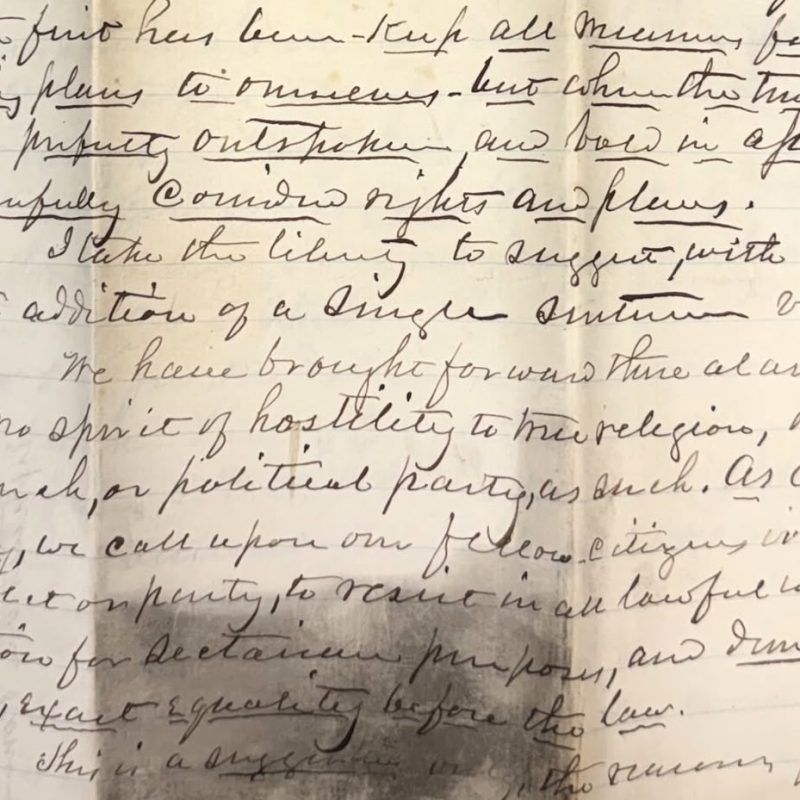 first has been - Keep all measures
plans to ourselves - but when the
perfectly outspoken, and bold in
Consider rights and plans.
I take the liberty to suggest, with
addition of a single sentence
We have brought forward these
no spirit of hostility to true religion,
or political party, as such. As
we call upon our fellow-citizens
or party, to resist in all lawful
for sectarian purposes, and
exact equality before the law.
This is a suggestion the reasons